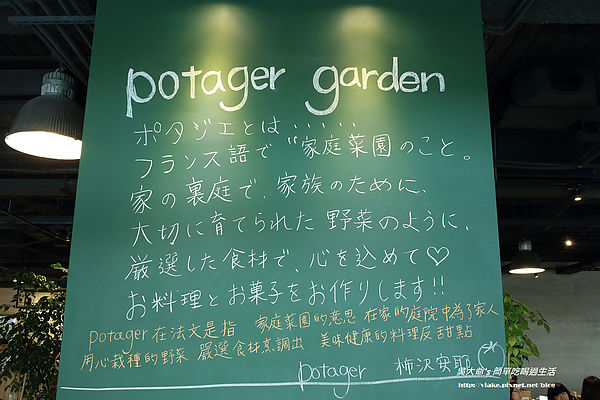 potager garden
ポタジエとは……
フランス語で"家庭菜園のこと。
家の裏庭で、家族のために、
大切に育てられた野菜のように、
厳選した食材で、心を込めて♡
お料理とお菓子をお作りします!!
potager 在法文是指 家庭菜園的意思 在家的庭院中為了家人
用心栽種的野菜 嚴選食材烹調出 美味健康的料理及甜點
potager 柿沢安耶
大俞's 簡單吃喝過生活
http://viake.pixnet.net/blog